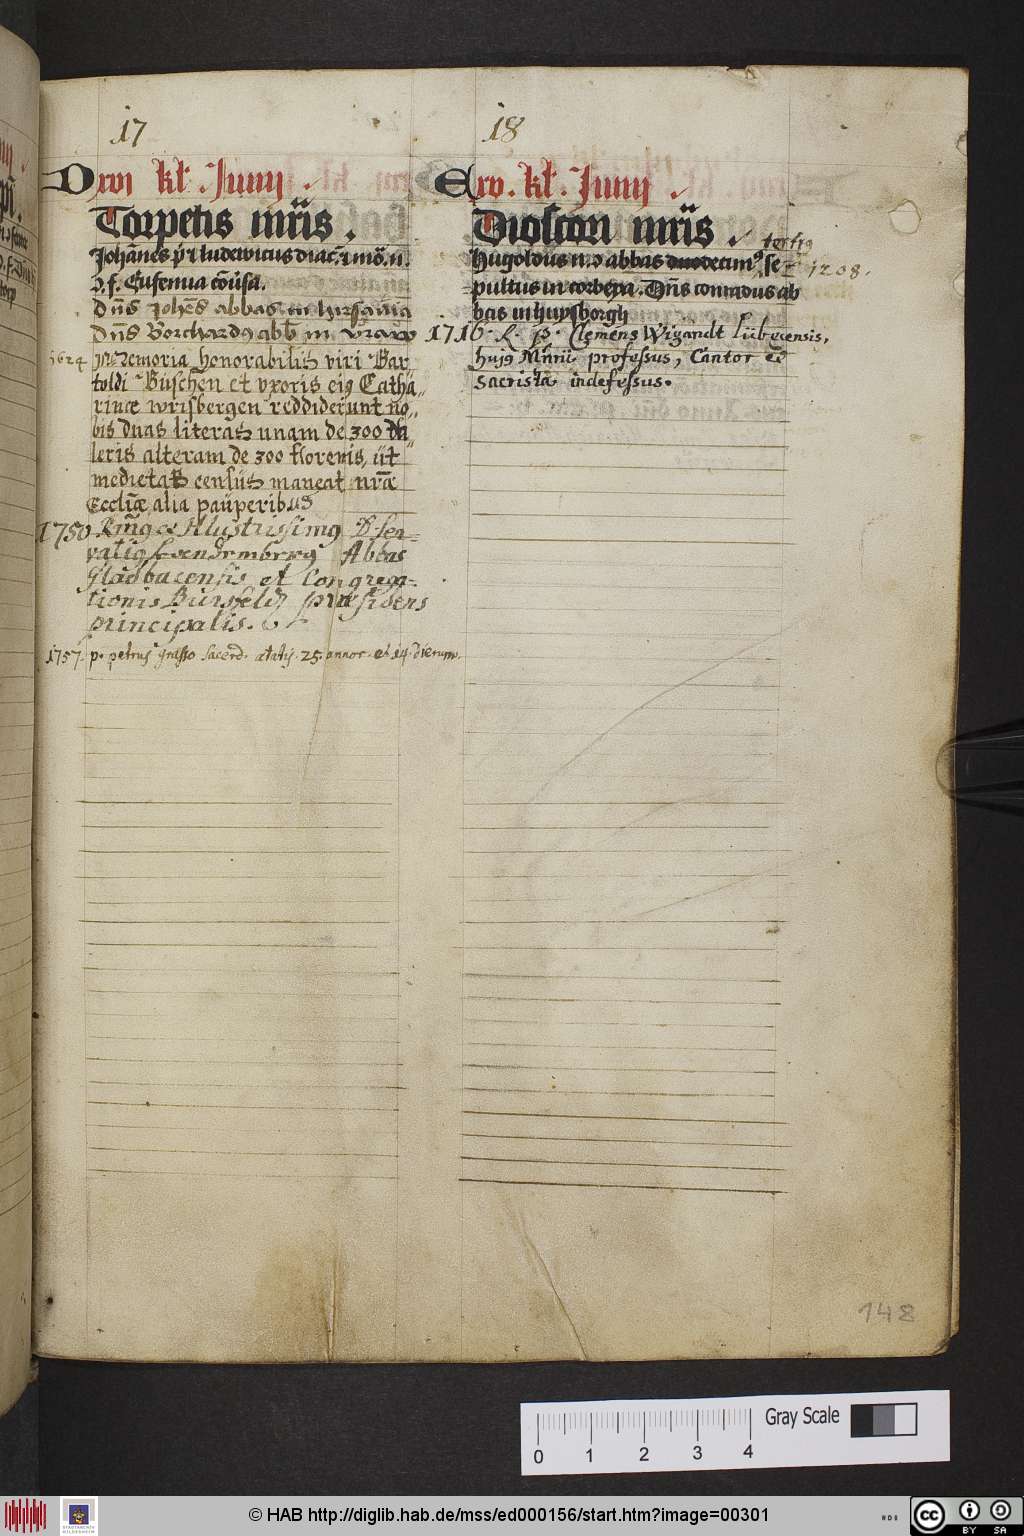 17
D xvj kł. Junij.
Torpetis mr̄is.
Johānes p̄r Ludewicus diac̄. mō. n.
f. Eufemia cōūsa.
Dn̄s Johēs abbas in hirsavia
Dn̄s Borchardꝯ abb̄ in
1624 Memoria honorabilis viri Bar
toldi Büschen et vxoris eiꝯ Catha„
rinæ wrisbergen reddiderunt no„
bis duas literas unam de 300 da„
leris alteram de 300 florenis, üt
medietas census maneat nr̄æ
Eccliæ alia paüperibus
1750 Rm̄ꝯ ac Illustrissimꝯ D. Ser=
vatiꝯ Abbas
Gladbacensis et Congrega=
tionis Bursfeld præsidens
principalis.
1757. p. petrus grasso sacerd. ætatis 25 annor. et 14 dierum.
18
E xv. kł. Junij.
Dioscori mr̄is.
tertiꝯ
Hugoldus n. abbas duodecimꝯ se
1208.
pultus in corbeya. Dn̄s conradus ab
bas in huysborgh
1716. R. P. Clemens Wigandt Lübecensis,
hujꝯ Mn̄rii professus, Cantor et
sacrista indefessus.
148
0 1 2 3 4
Gray Scale
© HAB http://diglib.hab.de/mss/ed000156/start.htm?image=00301
cc BY SA